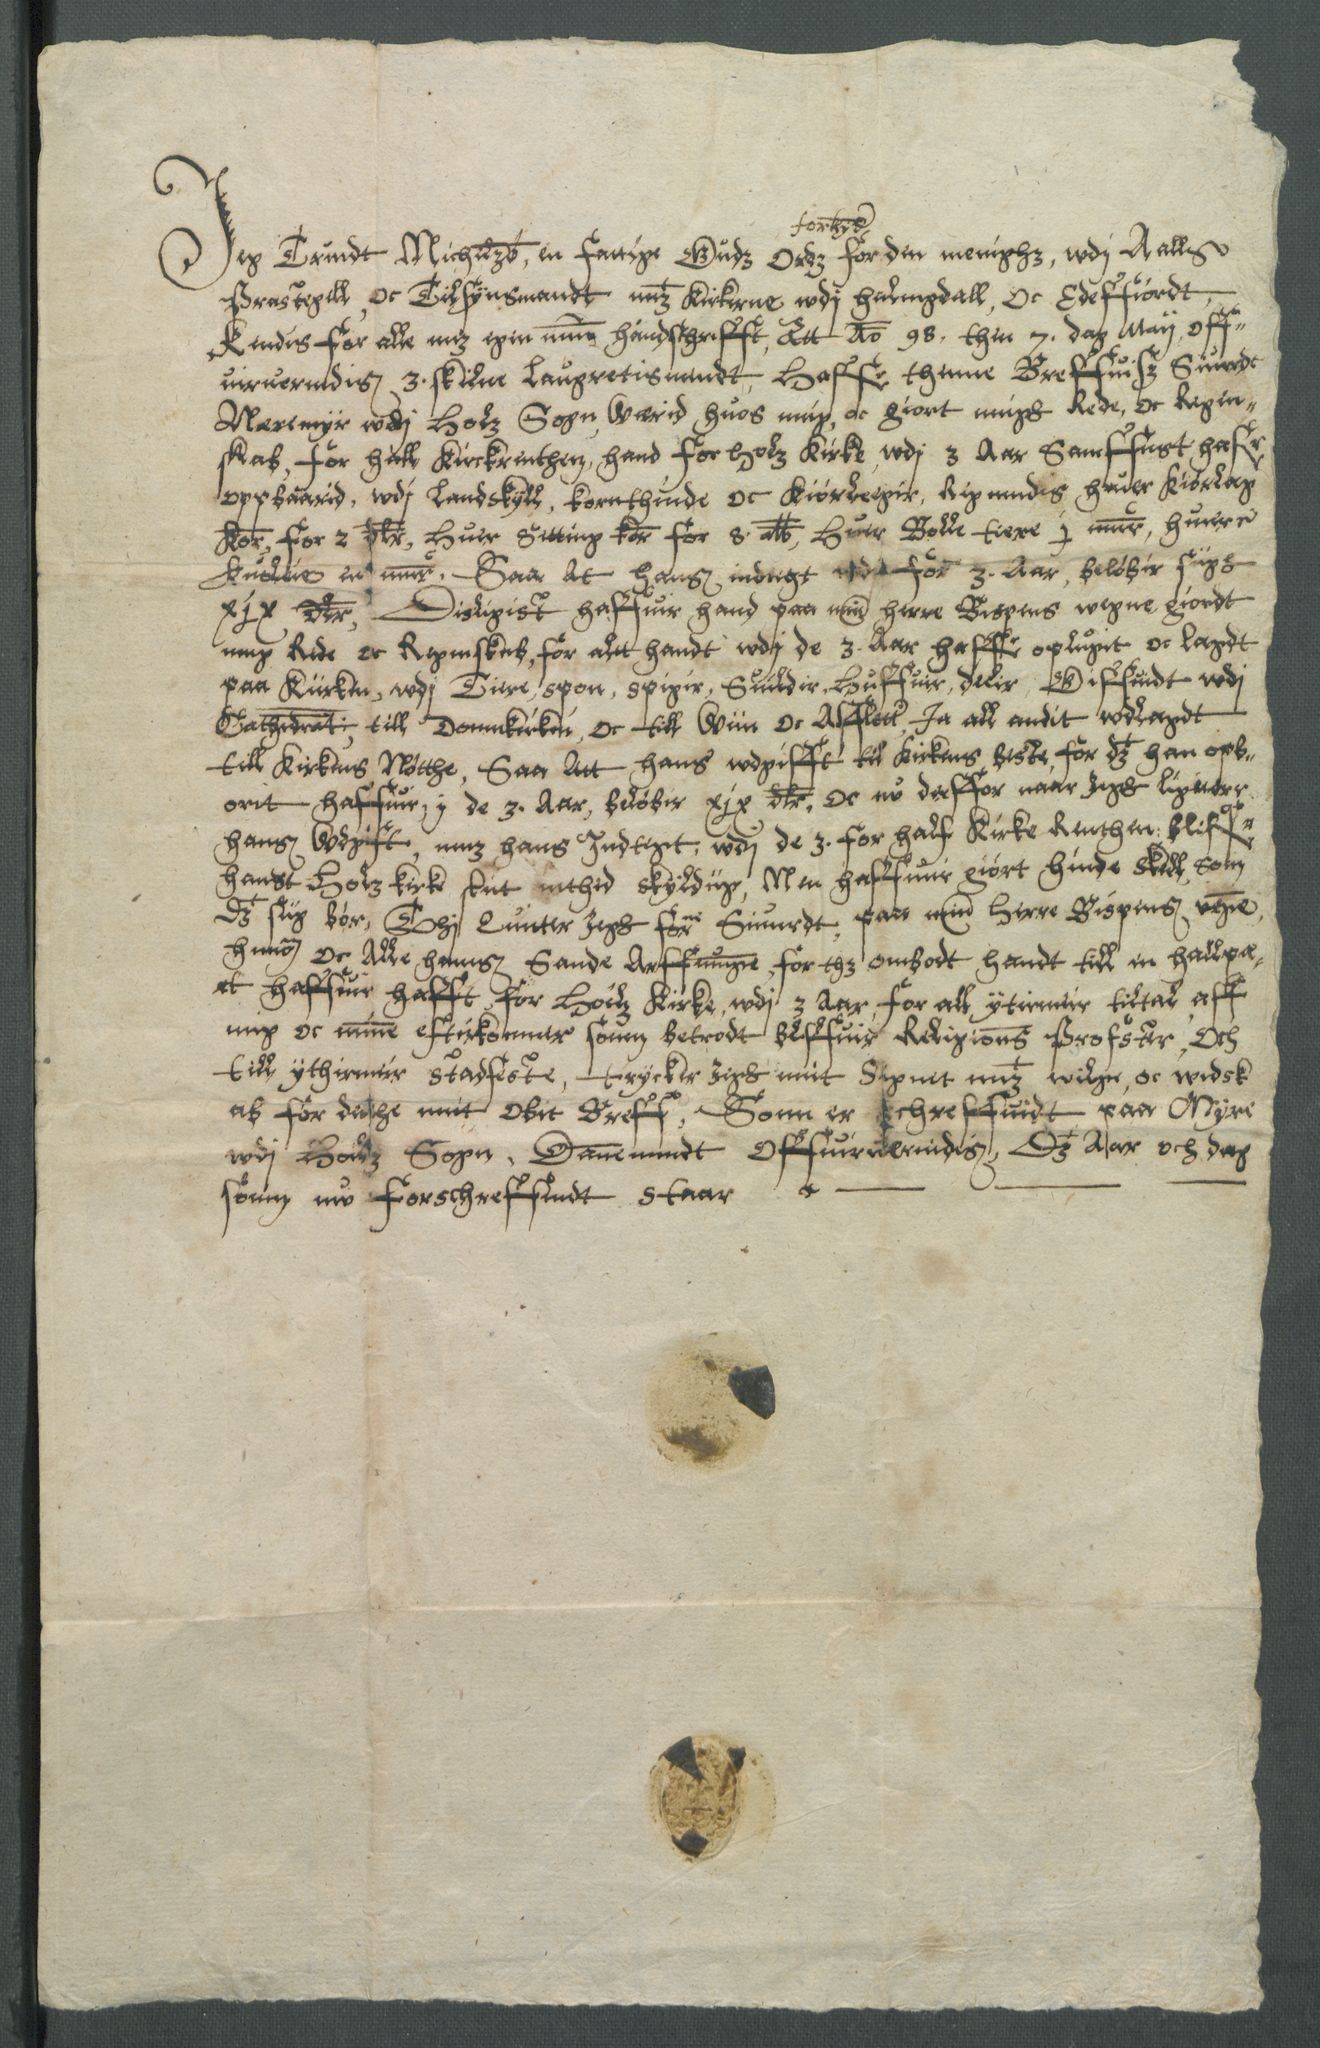 forkyn
Jeg Trundt Michelzß, en fattige Gudz Ordz for den menighz, wdj Aalls
Prastegill, oc Tilsÿnsmandt mz Kirkerne wdj halingdall, oc Edeffiordt,
Kendis for alle mz egen min handschrifft, Att Ao 98. then 7. dag Maÿ, off-
uiruerindis 3. skilne Laugretismendt, Haffr thenne Breffuisz Siuurdt
Næremÿr wdj Holz Sogn, wærid huos mig, oc giort migh Rede, oc Regen-
skab, for hall Kirckrenthen, hand for Holz Kirke, wdj 3 Aar Samffust hafr
oppbaarid, wdj Landskÿll, kornthinde oc Kiórleigir, Regnindis huer Kiórlag
Kor, for 2 dlr, huer Setting kor for 8 alb, huer Bolle tiere j mrk, huer
en mrk. Saa At hans indtegt wdi for 3. Aar, belóbir sigh
xjx dlr, Disligist haffuir hand paa min herre Bispens wegne giordt
mig Rede oc Regenskab, for alt handt wdj de 3. Aar haffr opligit oc lagdt
paa Kirken, wdj Tiere, spon, spigir, Suildir, huffuir, delir, Giffuidt wdj
Cathedrat: till Domkirken, oc till Wiin oc Afflett, Ja all andit wdlagdt
till Kirkens Nótthe, Saa Att hans wdgifft til Kirkens beste, for dz han opb-
orit haffuir, y de 3. Aar, belóbir xjx dlr, oc nv derffor naar Jegh ligner
hans Wdgift, mz hans Indtegt, wdj de 3. for half Kirke Renthen: blifr
hand Holz kirke slet inthid skÿldig, Men haffuir giort hinde skell, som
dz sig bór, Thj Quitter Jegh forne Siuurdt, paa min herre Bispens wegne,
hannom oc Alle hanns Sande Arffuinge, for thz ombodt handt till en hallpa-
rt haffuir hafft, for Holz Kirke, wdj 3 Aar, for all ÿtirmeir tiltal, aff
mig oc mine eftirkommer som betrodt bliffuir Religions Profster, Och
till ÿthirmeir stadfeste, trÿcker Jegh mit Signet mz wilge, oc widsk
ab for dethe mit obit Breff, Som er schreffuidt paa Mÿre
wdj Holz Sogn, Danemendt Offuiruerindis, Dz Aar och dag
som nv forschreffuidt staar